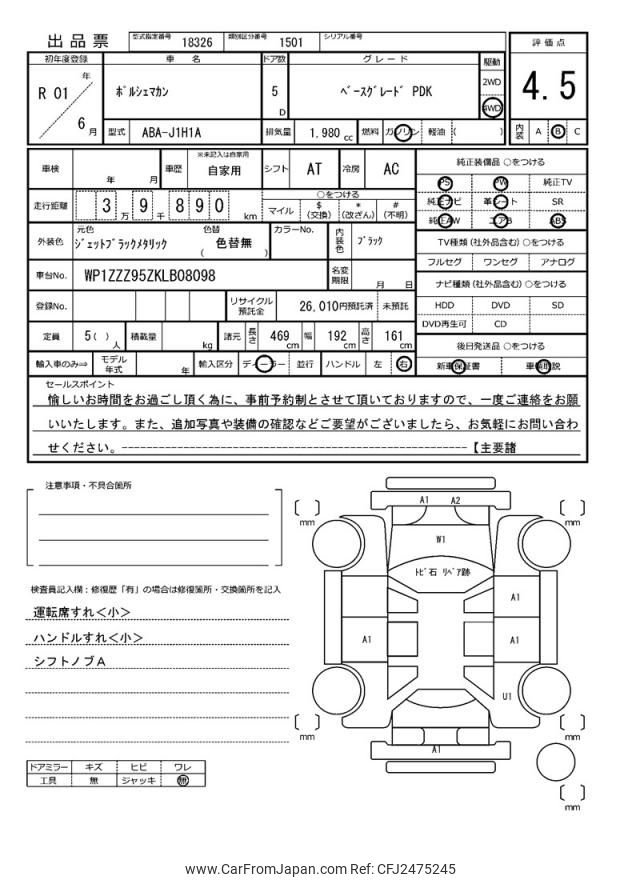 出品票 型式指定番号 18326 類別区分番号 1501 シリアル番号
初年度登録 車名 ドア数 グレード 駆動 評価点
R 01 年 6 月 ﾎﾟﾙｼｪﾏｶﾝ 5 D ﾍﾞｰｽｸﾞﾚｰﾄﾞ PDK 2WD 4WD 4.5
型式 ABA-J1H1A 排気量 1.980 cc 燃料 ガソリン 軽油 ( ) 内装 A B C
車検 年 月 車歴 ※未記入は自家用 自家用 シフト AT 冷房 AC
走行距離 3 万 9 千 8 9 0 km ○をつける
マイル $ (交換) * (改ざん) # (不明)
外装色 元色 ｼﾞｪｯﾄﾌﾞﾗｯｸﾒﾀﾘｯｸ 色替 ( 色替無 ) カラーNo. 内装色 ﾌﾞﾗｯｸ
車台No. WP1ZZZ95ZKLB08098 名変期限 月 日
登録No. リサイクル預託金 26,010円預託済 未預託
定員 5( ) 人 積載量 kg 諸元 長さ 469 cm 幅 192 cm 高さ 161 cm
輸入車のみ⇨ モデル年式 年 輸入区分 ディーラー 並行 ハンドル 左 右
純正装備品 ○をつける
PS PW 純正TV
純正ナビ 革シート SR
純正AW エアB ABS
TV種類 (社外品含む) ○をつける
フルセグ ワンセグ アナログ
ナビ種類 (社外品含む) ○をつける
HDD DVD SD
DVD再生可 CD
後日発送品 ○をつける
新車保証書 車輌取説
セールスポイント
愉しいお時間をお過ごし頂く為に、事前予約制とさせて頂いておりますので、一度ご連絡をお願
いいたします。また、追加写真や装備の確認などご要望がございましたら、お気軽にお問い合わ
せください。------------------------------------------------【主要諸
注意事項・不具合箇所
検査員記入欄：修復歴「有」の場合は修復箇所・交換箇所を記入
運転席すれ＜小＞
ハンドルすれ＜小＞
シフトノブＡ
ドアミラー キズ ヒビ ワレ
工具 無 ジャッキ 無
mm A1 A2 mm
W1
ﾄﾋﾞ石 ﾘﾍﾟｱ跡
A1
A1 A1
U1
mm A1 mm
mm
www.CarFromJapan.com Ref: CFJ2475245